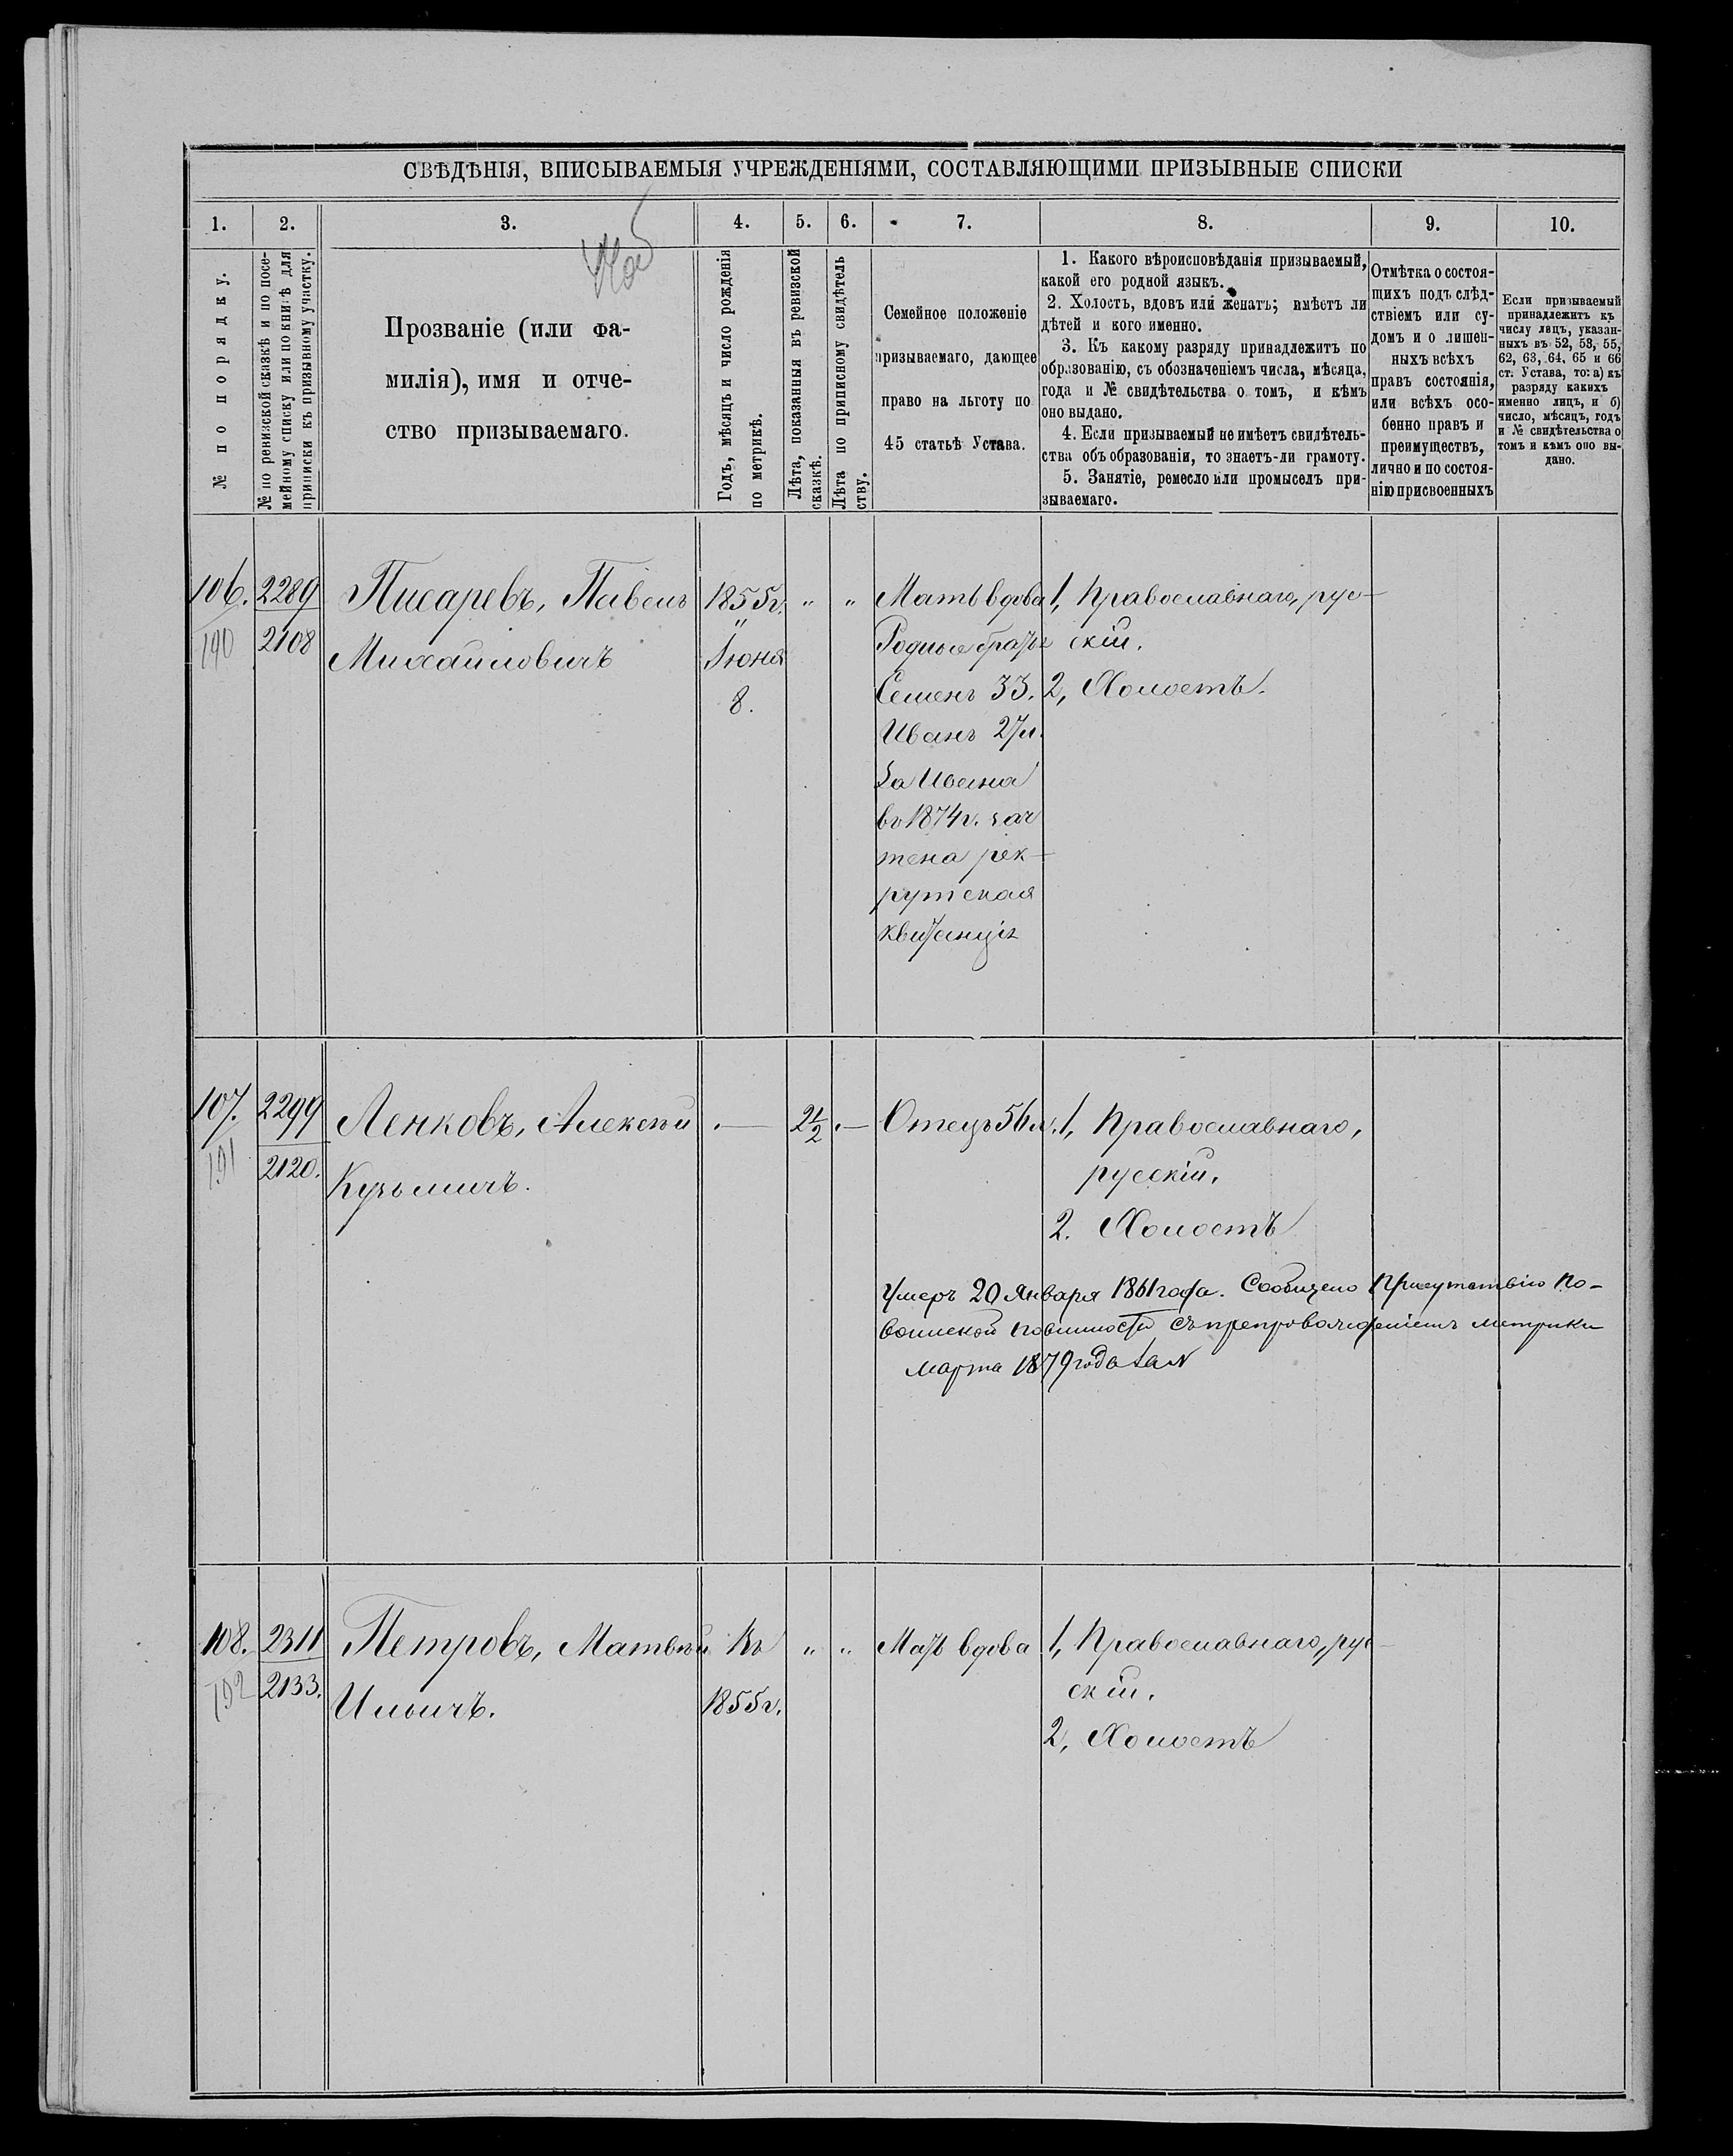 СВѢДѢНІЯ, ВПИСЫВАЕМЫЯ УЧРЕЖДЕНІЯМИ, СОСТАВЛЯЮЩИМИ ПРИЗЫВНЫЕ СПИСКИ
1. 2. 3. 4. 5. 6. 7. 8. 9. 10.
№ по порядку.
№ по ревизской сказкѣ и по посе-
мейному списку или по книгѣ для
приписки къ призывному участку.
Прозваніе (или фа-
милія), имя и отче-
ство призываемаго.
Годъ, мѣсяцъ и число рожденія
по метрикѣ.
Лѣта, показанныя въ ревизской
сказкѣ.
Лѣта по приписному свидѣтель
ству.
Семейное положеніе
призываемаго, дающее
право на льготу по
45 статьѣ Устава.
1. Какого вѣроисповѣданія призываемый,
какой его родной языкъ.
2. Холостъ, вдовъ или женатъ; имѣетъ ли
дѣтей и кого именно.
3. Къ какому разряду принадлежитъ по
образованію, съ обозначеніемъ числа, мѣсяца,
года и № свидѣтельства о томъ, и кѣмъ
оно выдано.
4. Если призываемый не имѣетъ свидѣтель-
ства объ образованіи, то знаетъ-ли грамоту.
5. Занятіе, ремесло или промыселъ при-
зываемаго.
Отмѣтка о состоя-
щихъ подъ слѣд-
ствіемъ или су-
домъ и о лишен-
ныхъ всѣхъ
правъ состоянія,
или всѣхъ осо-
бенно правъ и
преимуществъ,
лично и по состоя-
нію присвоенныхъ
Если призываемый
принадлежитъ къ
числу лицъ, указан-
ныхъ въ 52, 53, 55,
62, 63, 64, 65 и 66
ст. Устава, то: а) къ
разряду какихъ
именно лицъ, и б)
число, мѣсяцъ, годъ
и № свидѣтельства о
томъ и кѣмъ оно вы-
дано.
106. 2289 Писаревъ, Павелъ 1855г. „ „ Мать вдова 1, Православнаго, рус-
190 2108 Михайловичъ „ Іюня Родные братья скій.
8. Семенъ 33. 2, Холостъ.
Иванъ 27л.
За Ивана
въ 1874г. зач
тена рек-
рутская
квитанція
107. 2299 Ленковъ, Алексѣй — 2½ — Отецъ 56л. 1, Православнаго,
191 2120. Кузьмичъ. русскій.
2. Холостъ
Умеръ 20 Января 1861 года. Сообщено Присутствію по-
воинской повинности съ препровожденіемъ метрики
марта 1879 года за №
108. 2311 Петровъ, Матвѣй Въ „ „ Мать вдова 1, Православнаго, рус-
192 2133. Ильичъ. 1855г. скій.
2, Холостъ